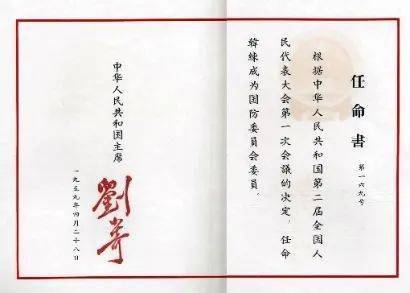 任命書
第一六九号
根据中华人民共和国第二届全国人
民代表大会第一次会議的决定，任命
韓練成为国防委员会委员。
中华人民共和国主席
劉少奇
一九五九年四月二十八日